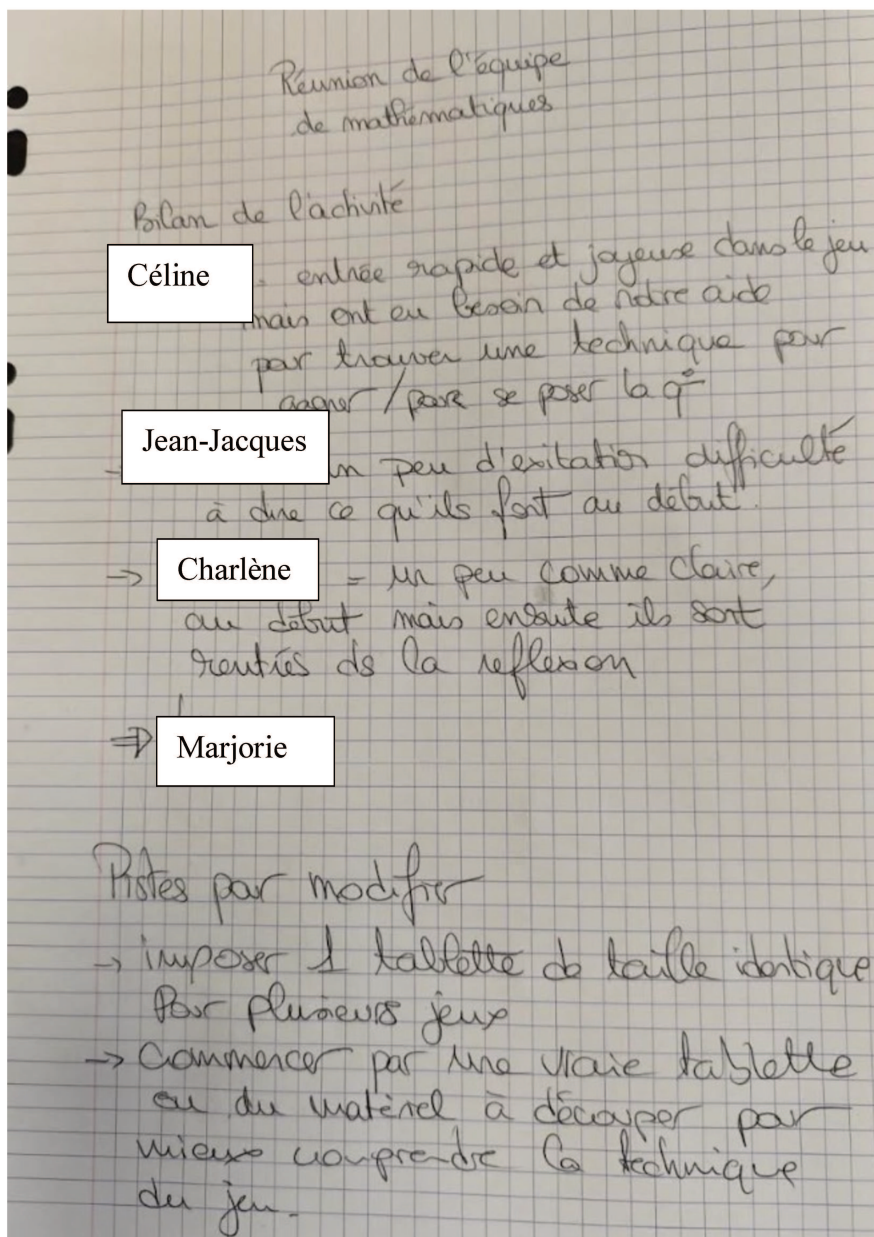 Réunion de l'équipe
de mathématiques
Bilan de l'activité
Céline : entrée rapide et joyeuse dans le jeu
mais ont eu besoin de notre aide
pour trouver une technique pour
gagner / pour se poser la q°
Jean-Jacques un peu d'exitation difficulté
à dire ce qu'ils font au début.
→ Charlène = un peu comme Claire,
au début mais ensuite ils sont
rentrés ds la reflexion
⇒ Marjorie
Pistes pour modifier
→ imposer 1 tablette de taille identique
Pour plusieurs jeux
→ Commencer par une vraie tablette
ou du matériel à découper pour
mieux comprendre la technique
du jeu.